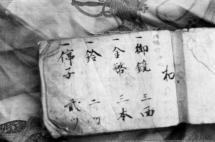 一御鏡 三面
一金幣 三本
一鈴 二ツ
一障子 弐